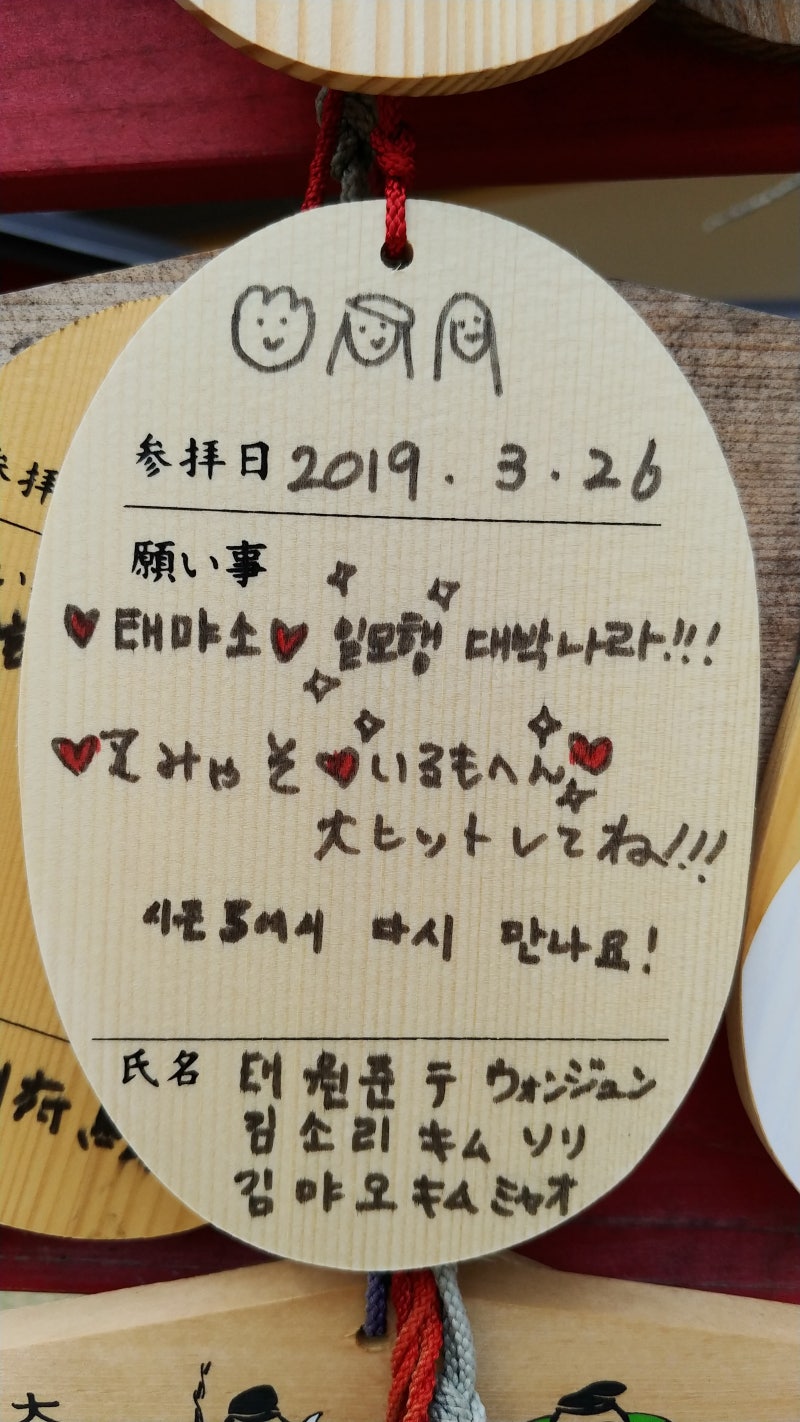 参拝日 2019.3.26
願い事
♥태먀소♥ 일모행 대박나라!!!
みゃ そ♥いるもへん♥
大ヒットしてね!!!
시즌5에서 다시 만나요!
氏名 태 원준 テ ウォンジュン
김 소리 キム ソリ
김 먀오 キム ミャオ
大